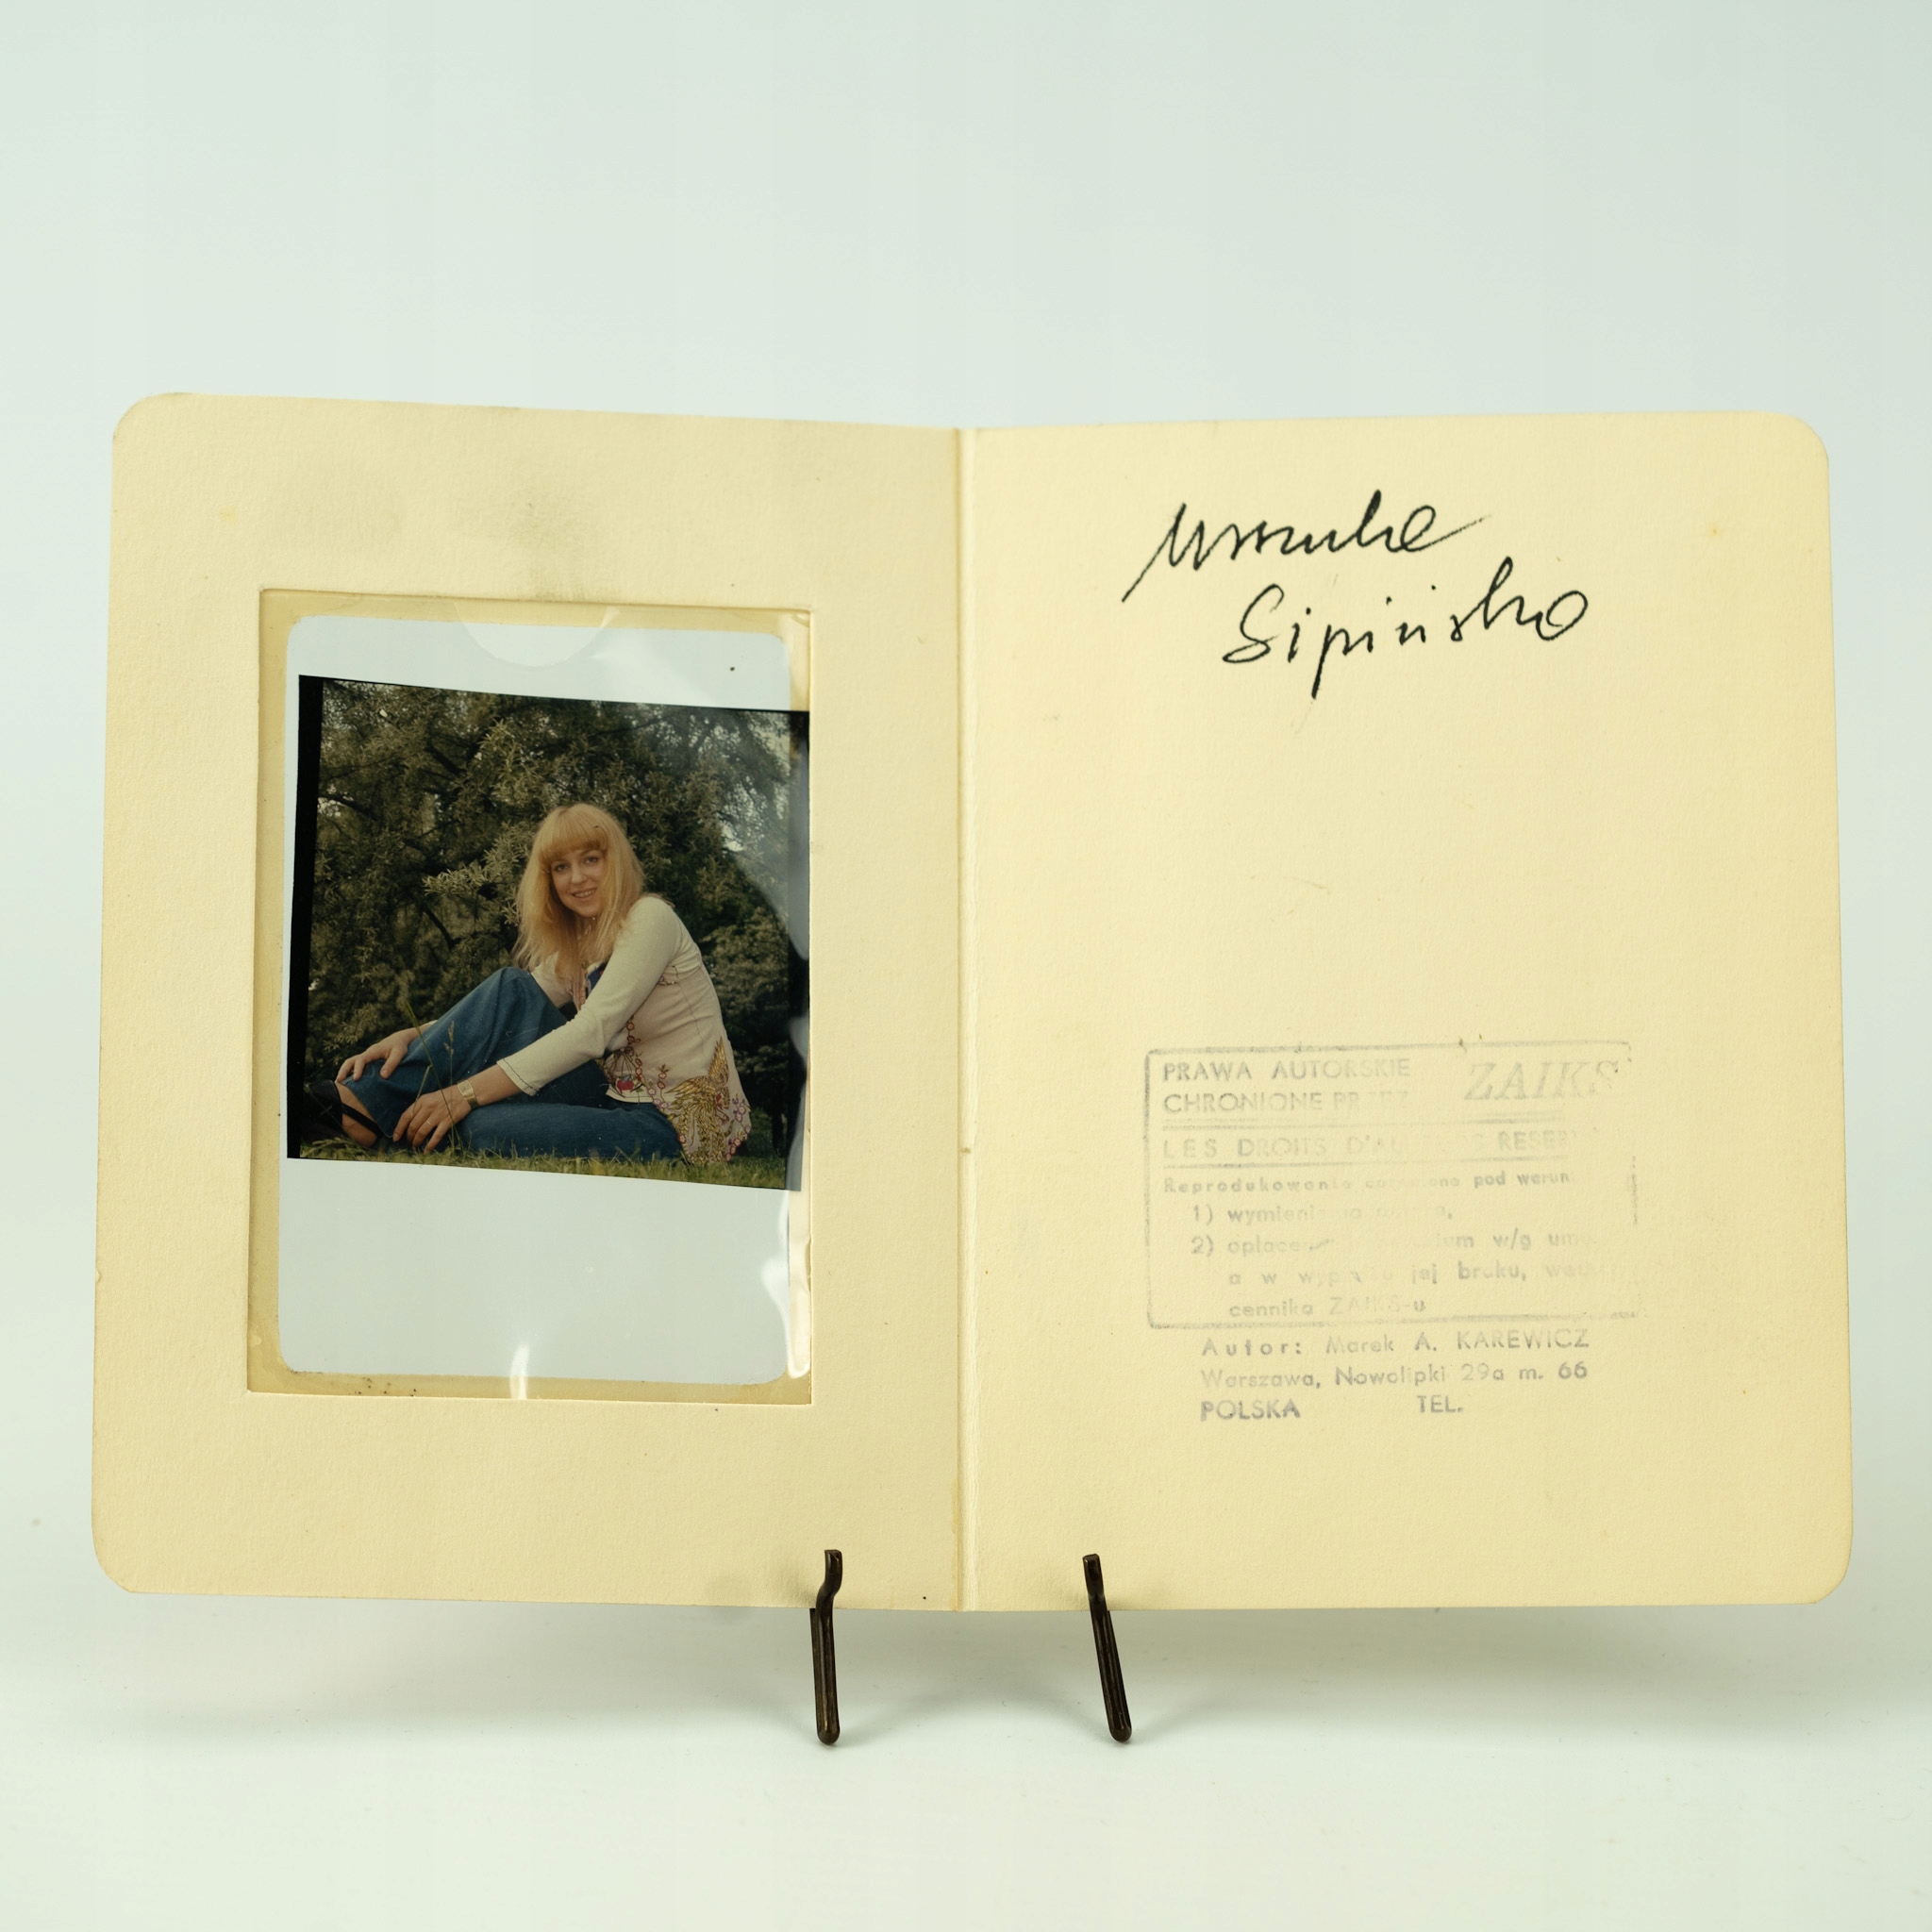 Urszula
Sipińska
PRAWA AUTORSKIE
CHRONIONE PRZEZ ZAIKS
LES DROITS D'AU RESER
Reprodukowanie pod warun
1) wymieni
2) opłace w/g um
a w wyp jej braku,
cennika ZAIKS-u
Autor: Marek A. KAREWICZ
Warszawa, Nowolipki 29a m. 66
POLSKA TEL.